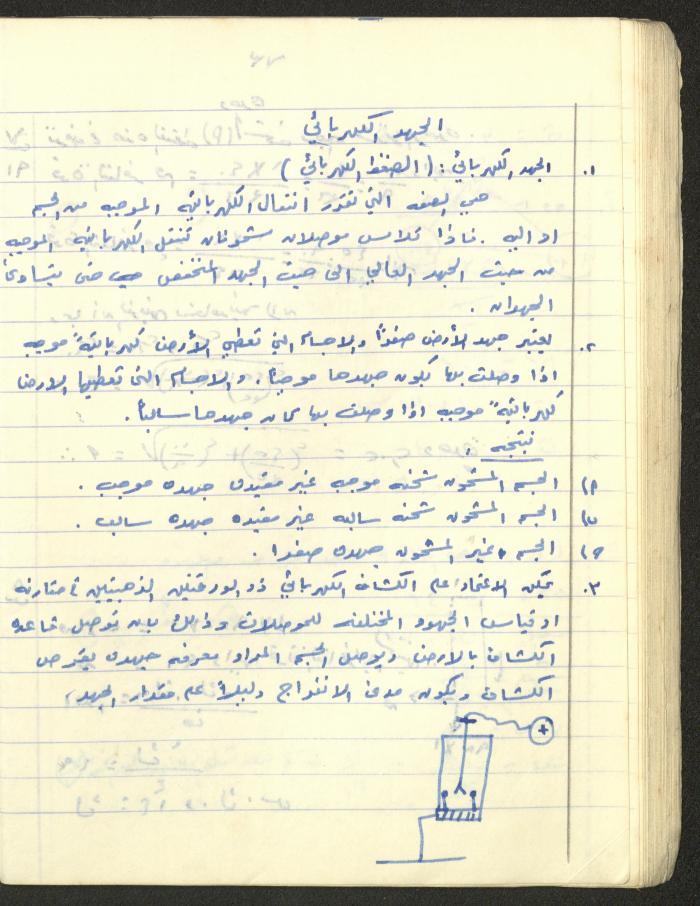 الجهد الكهربائي
١. الجهد الكهربائي : ( الضغط الكهربائي )
هي الصفه التي تقرر انتقال الكهربائيه الموجبه من الجسم
او اليه . فاذا تلامس موصلان مشحونان تنتقل الكهربائيه الموجبه
من حيث الجهد العالي الى حيث الجهد المنخفض حتى يتساوى
الجهدان .
٢. يعتبر جهد الأرض صفرًا والاجسام التي تعطي الأرض كهربائيةً موجبه
اذا وصلت بها يكون جهدها موجباً . والاجسام التي تعطيها الارض
كهربائيةً موجبه اذا وصلت بها كان جهدها سالباً .
نتيجه :
٩) الجسم المشحون شحنه موجبه غير مقيده جهده موجب .
ب) الجسم المشحون شحنه سالبه غير مقيده جهده سالب .
ج) الجسم غير المشحون جهده صفرا .
٣. يمكن الاعتماد على الكشاف الكهربائي ذو الورقتين الذهبيتين في مقارنه
او قياس الجهود المختلفه للموصلات وذلك بان توصل قاعده
الكشاف بالارض ويوصل الجسم المراد معرفه جهده بقرص
الكشاف ويكون مدى الانفراج دليلاً على مقدار الجهد
+